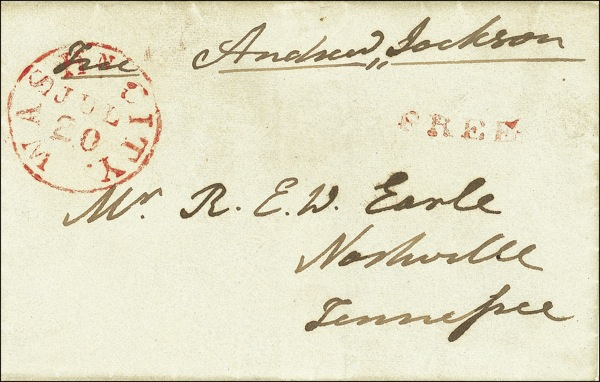 Free Andrew Jackson
WASHN CITY.
JUL
20
FREE
Mr. R. E. W. Earle
Nashville
Tenneſsee